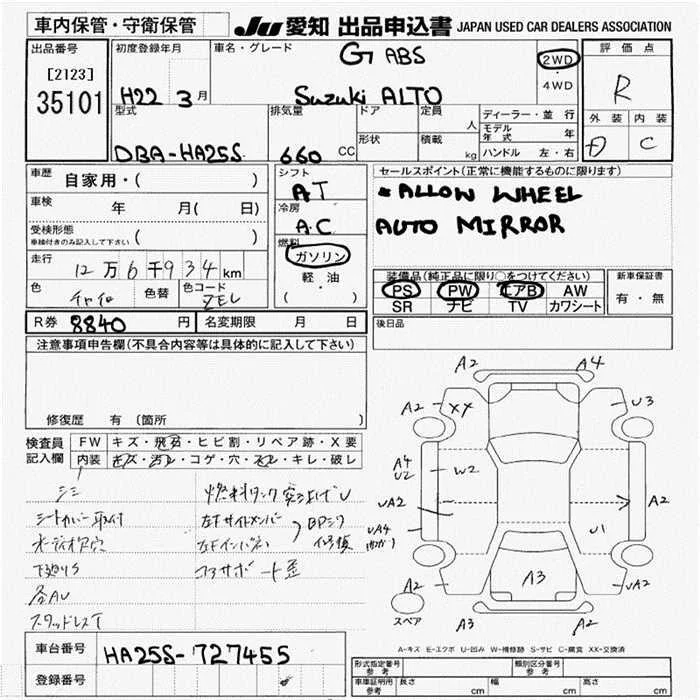 車内保管・守衛保管 JU 愛知 出品申込書 JAPAN USED CAR DEALERS ASSOCIATION
出品番号 初度登録年月 車名・グレード G ABS 2WD 評価点
[2123] ・ R
35101 H22 3月 Suzuki ALTO 4WD
型式 排気量 ドア 定員 人 ディーラー・並行 外装 内装
モデル年式 年 D C
DBA-HA25S 660 CC 形状 積載 kg ハンドル 左・右
車歴 自家用・( ) シフト AT セールスポイント(正常に機能するものに限ります)
車検 年 月( 日) 冷房 A.C *ALLOW WHEEL
受検形態 ( ) AUTO MIRROR
車検付きのみ記入して下さい
燃料 ガソリン
走行 12万6千934km 軽・油
( ・ )
装備品(純正品に限り○をつけてください) 新車保証書
色 色替 色コード ZEL PS PW エアB AW 有・無
SR ナビ TV カワシート
R券 8840円 名変期限 月 日 後日品
注意事項申告欄(不具合内容等は具体的に記入して下さい)
修復歴 有 (箇所 )
検査員 FW キズ・飛石・ヒビ割・リペア跡・X要
記入欄 内装 キズ・汚レ・コゲ・穴・スレ・キレ・破レ
シミ 燃料タンク突き上げU
シートカバー取付 左Fサイドメンバー
オーディオ欠穴 左Fインパネ
下廻りS コアサポート歪
各AU
スタッドレスT
A2 A4
A2 XX U3
A4
U2 W2
UA2 A2
UA4 U1
A2 A3 UA2
スペア A3 A2
A-キズ E-エクボ U-凹み W-補修跡 S-サビ C-腐食 XX-交換済
車台番号 HA25S-727455
登録番号
形式指定番号 参考 類別区分番号 参考
車庫証明用 参考 長さ cm 幅 cm 高さ cm